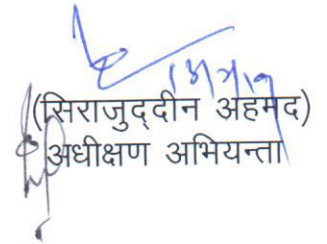 (सिराजुद्दीन अहमद)
अधीक्षण अभियन्ता